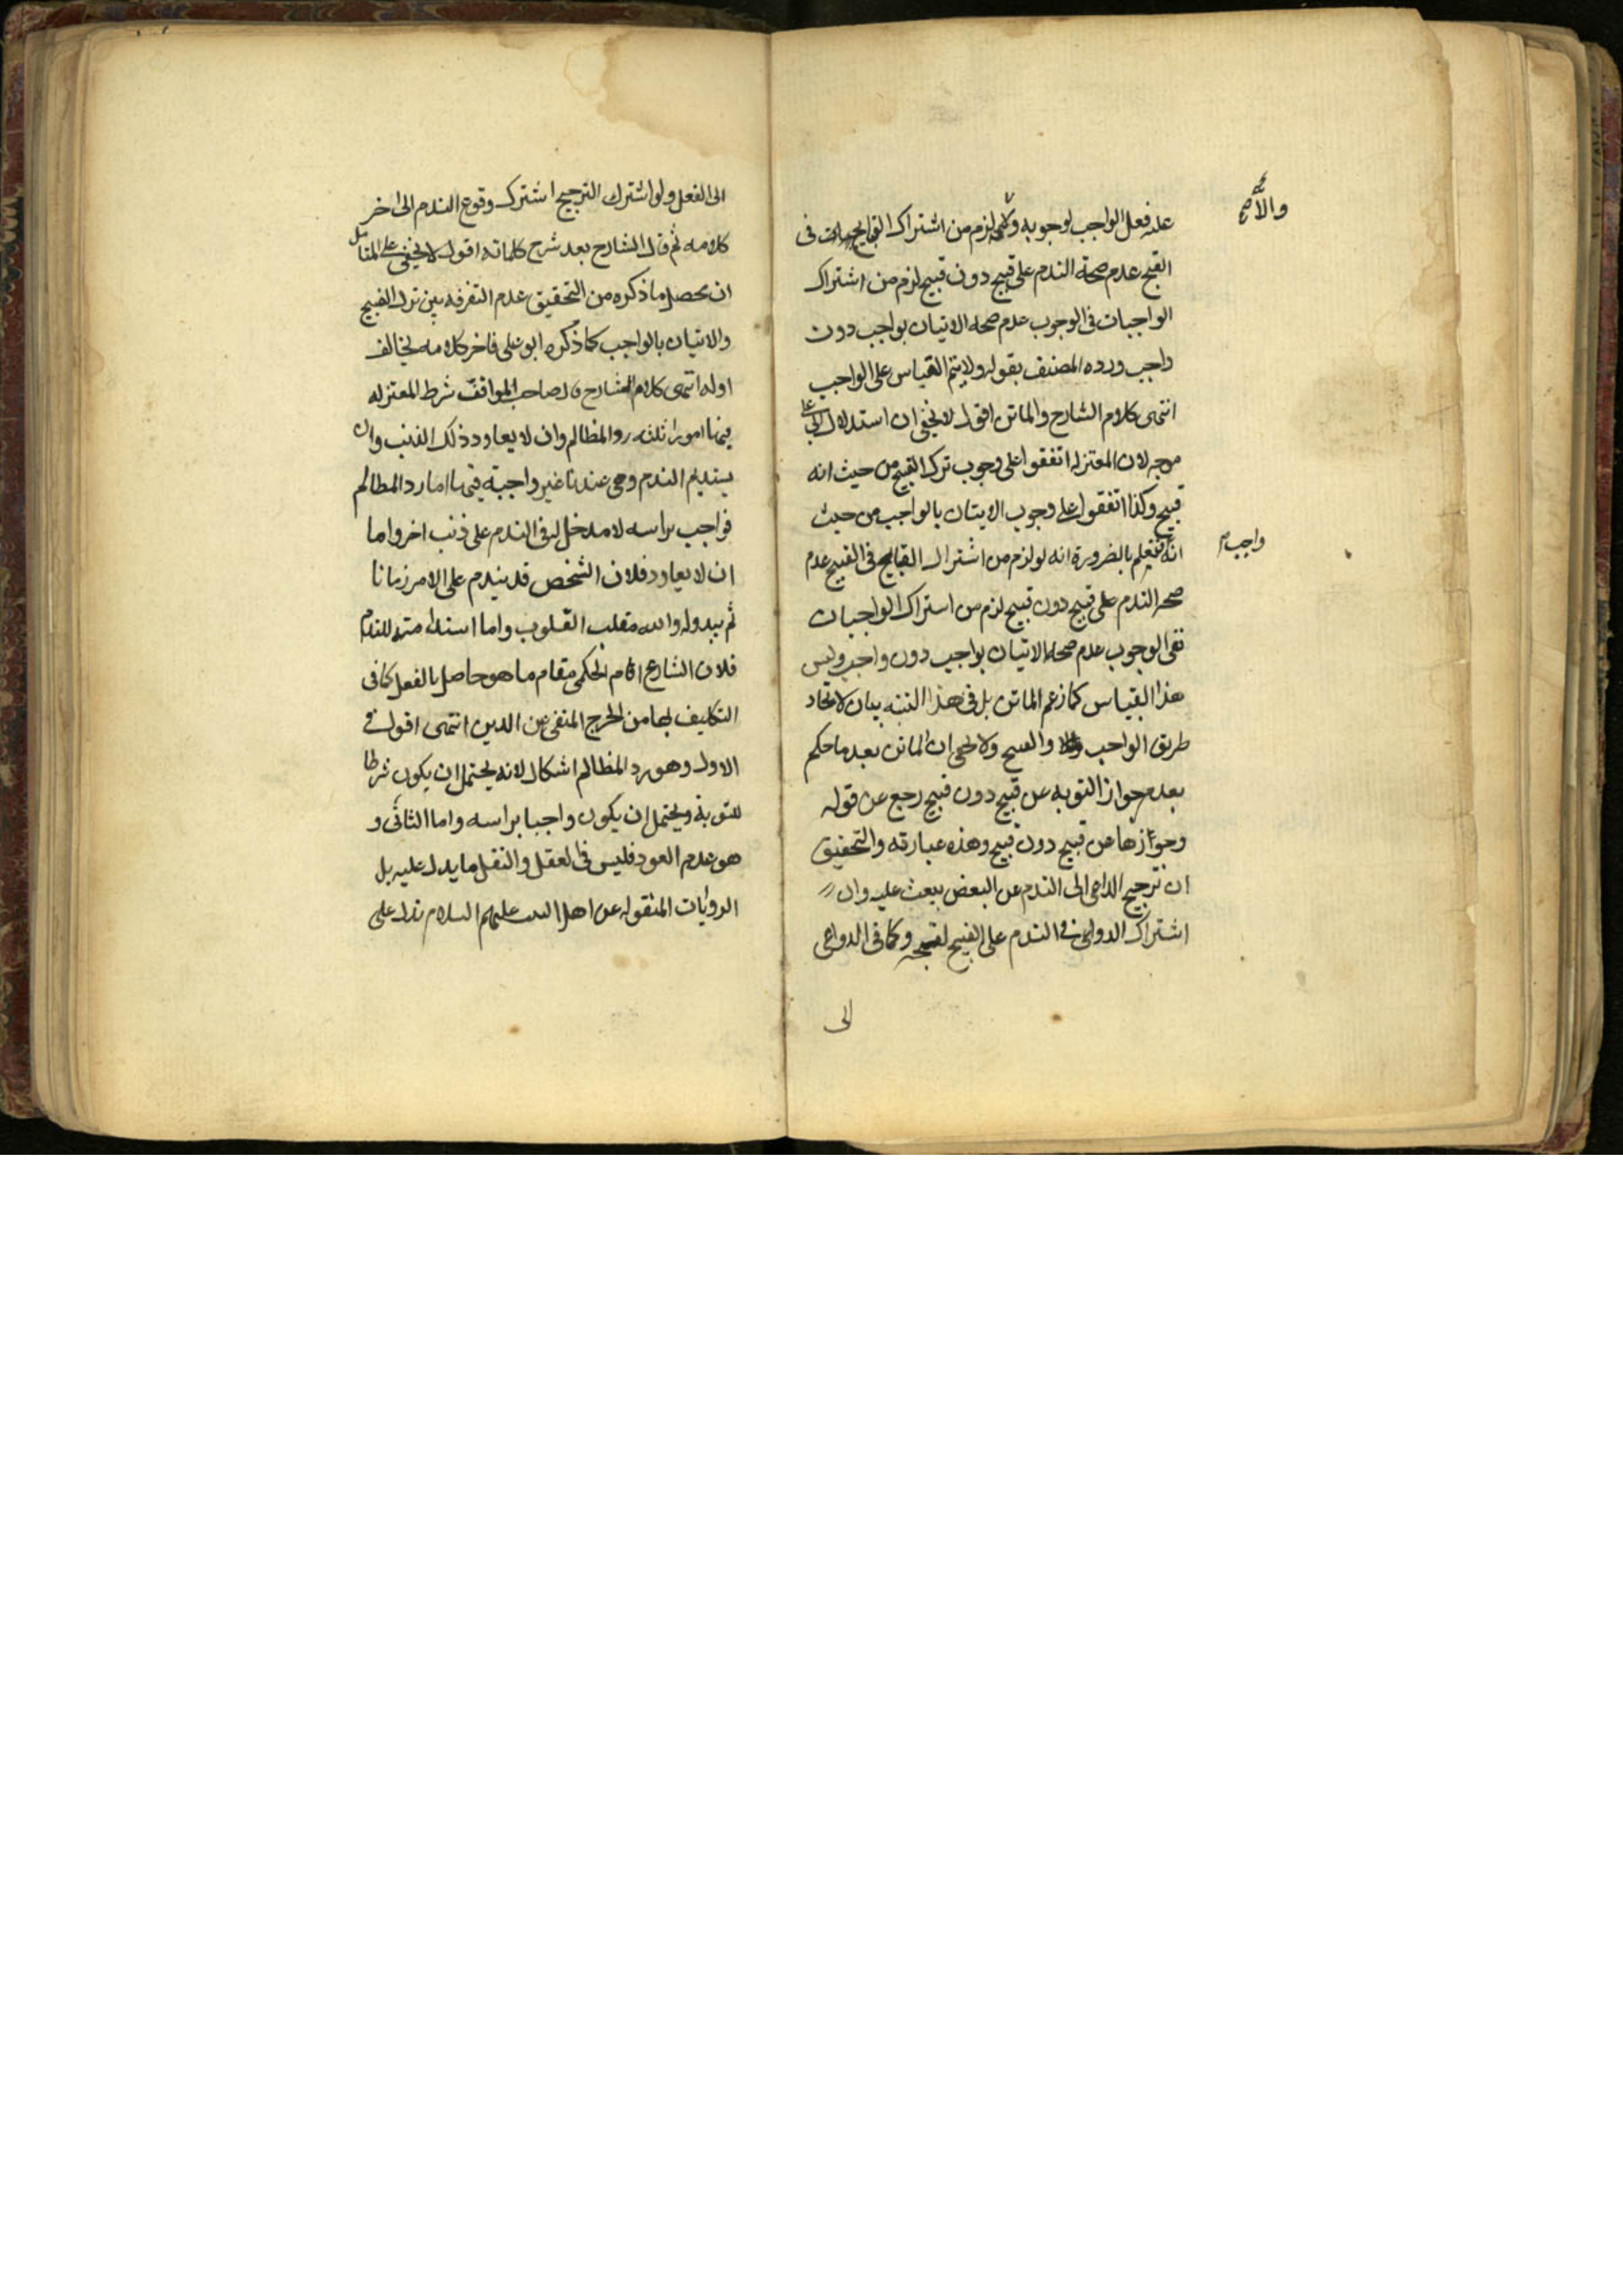 علة فعل الواجب لوجوبه ولو لزم من اشتراك القبايح فى
والا صح
القبح عدم صحة الندم على قبيح دون قبيح لزم من اشتراك
الواجبات فى الوجوب عدم صحه الاتيان بواجب دون
واجب ورده المصنف بقوله ولا يتم القياس على الواجب
انتهى كلام الشارح والماتن اقول لا يخفى ان استدلال ابى على
موجه لان المعتزله اتفقوا على وجوب ترك القبيح من حيث انه
قبيح وكذا اتفقوا على وجوب الاتيان بالواجب من حيث
انه فنعلم بالضرورة انه لو لزم من اشتراك القبايح فى القبيح عدم
واجب م
صحه الندم على قبيح دون قبيح لزم من استراك الواجبات
نفى الوجوب عدم صحه الاتيان بواجب دون واجب وليس
هذا القياس كما زعم الماتن بل فى هذا التنبه بيان لاتحاد
طريق الواجب والقبيح ولا يخفى ان الماتن بعد ما حكم
بعدم جواز التوبه عن قبيح دون قبيح رجع عن قوله
وجوازها عن قبيح دون قبيح وهذه عبارته والتحقيق
ان ترجيح الداعى الى الندم عن البعض يبعث عليه وان
اشتراك الدواعى فى الندم على القبيح لقبحه وكما فى الدواعى
الى
الى الفعل ولو اشترك الترجيح اشترك وقوع الندم الى اخر
كلامه ثم قال الشارح بعد شرح كلماته اقول لا يخفى على المتامل
ان محصل ما ذكره من التحقيق عدم التفرقه بين ترك القبيح
والاتيان بالواجب كما ذكره ابو على فاخر كلامه يخالف
اوله انتهى كلام الشارح قال صاحب المواقف شرط المعتزله
فيها امورا ثلثه رد المظالم وان لا يعاود ذلك الذنب وان
يستديم الندم وهى عندنا غير واجبة فيها اما رد المظالم
فواجب براسه لا مدخل له فى الندم على ذنب اخر واما
ان لا يعاود فلان الشخص قد يندم على الامر زمانا
ثم يبدو له والله مقلب القلوب واما استدامته للندم
فلان الشارع اقام الحكمى مقام ما هو حاصل بالفعل كما فى
التكليف بها من الحرج المنفى عن الدين انتهى اقول فى
الاول وهو رد المظالم اشكال لانه يحتمل ان يكون شرطا
للتوبة ويحتمل ان يكون واجبا براسه واما الثانى و
هو عدم العود فليس فى العقل والنقل ما يدل عليه بل
الروايات المنقوله عن اهل البيت عليهم السلام تدل على